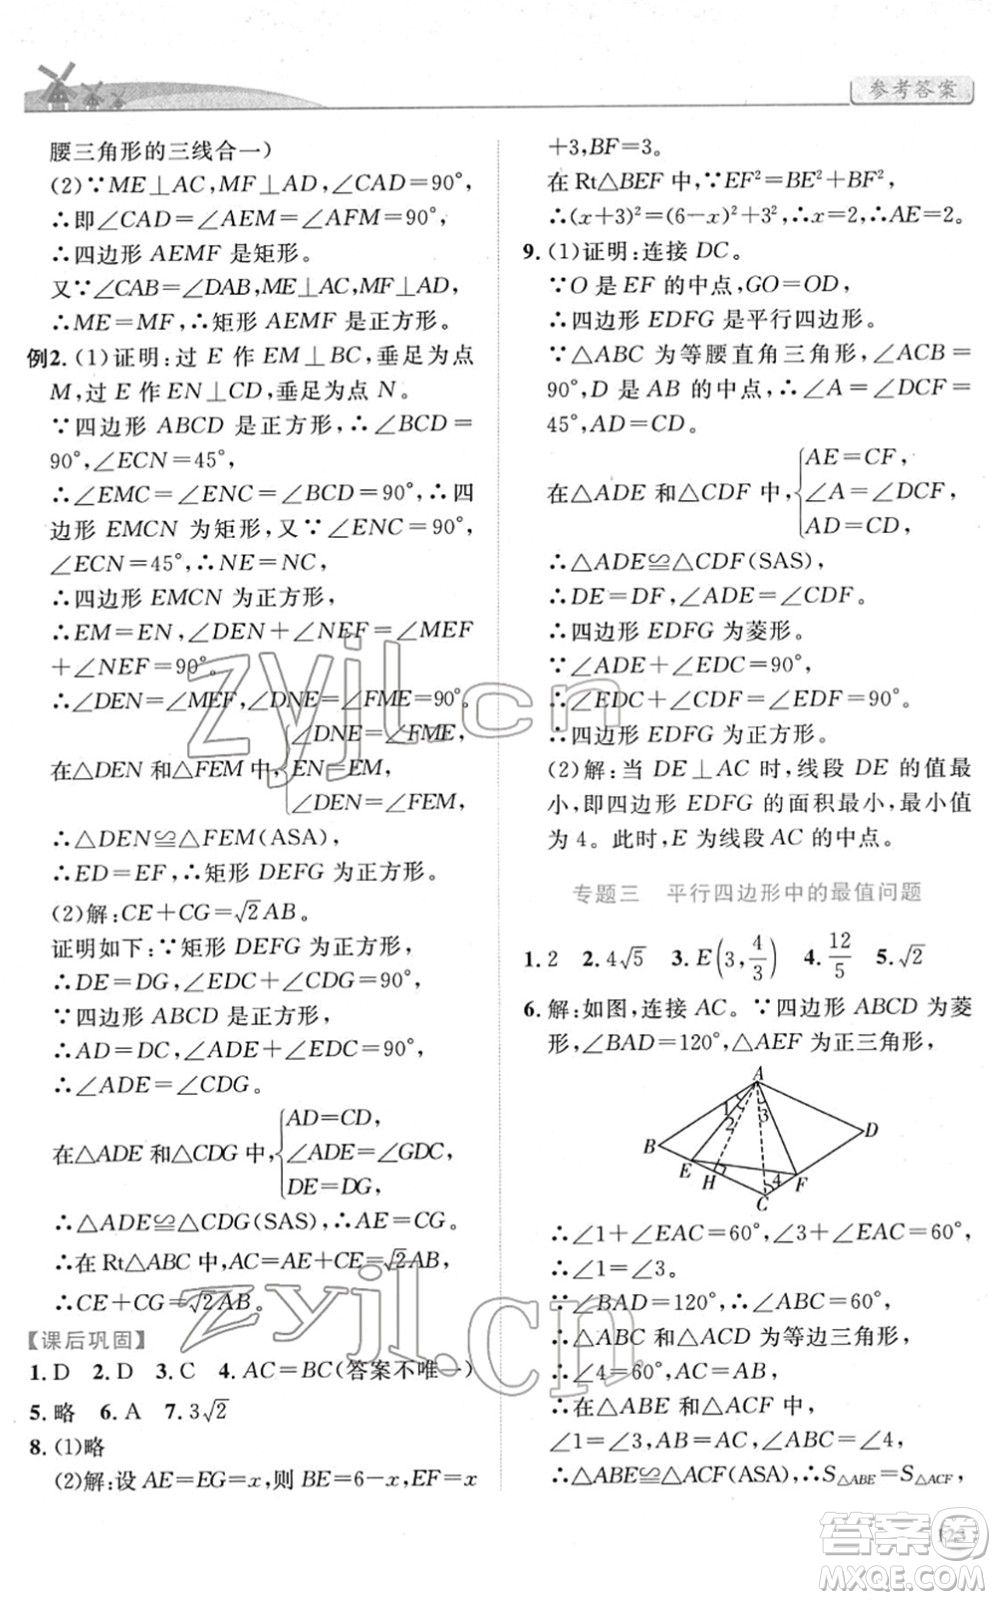 参考答案
腰三角形的三线合一)
(2)∵ME⊥AC,MF⊥AD,∠CAD=90°,
∴即∠CAD=∠AEM=∠AFM=90°,
∴四边形 AEMF 是矩形。
又∵∠CAB=∠DAB,ME⊥AC,MF⊥AD,
∴ME=MF,∴矩形 AEMF 是正方形。
例2. (1)证明:过 E 作 EM⊥BC,垂足为点
M,过 E 作 EN⊥CD,垂足为点 N。
∵四边形 ABCD 是正方形,∴∠BCD=
90°,∠ECN=45°,
∴∠EMC=∠ENC=∠BCD=90°,∴四
边形 EMCN 为矩形,又∵∠ENC=90°,
∠ECN=45°,∴NE=NC,
∴四边形 EMCN 为正方形,
∴EM=EN,∠DEN+∠NEF=∠MEF
+∠NEF=90°。
∴∠DEN=∠MEF,∠DNE=∠FME=90°。
在△DEN和△FEM 中,{∠DNE=∠FME,
EN=EM,
∠DEN=∠FEM,
∴△DEN≌△FEM(ASA),
∴ED=EF,∴矩形 DEFG 为正方形。
(2)解:CE+CG=√2AB。
证明如下:∵矩形 DEFG 为正方形,
∴DE=DG,∠EDC+∠CDG=90°,
∵四边形 ABCD 是正方形,
∴AD=DC,∠ADE+∠EDC=90°,
∴∠ADE=∠CDG。
在△ADE 和△CDG 中,{AD=CD,
∠ADE=∠CDG,
DE=DG,
∴△ADE≌△CDG(SAS),∴AE=CG。
∴在 Rt△ABC 中,AC=AE+CE=√2AB,
∴CE+CG=√2AB。
【课后巩固】
1. D 2. D 3. C 4. AC=BC(答案不唯一)
5. 略 6. A 7. 3√2
8. (1)略
(2)解:设 AE=EG=x,则 BE=6-x,EF=x
+3,BF=3。
在 Rt△BEF 中,∵EF²=BE²+BF²,
∴(x+3)²=(6-x)²+3²,∴x=2,∴AE=2。
9. (1)证明:连接 DC。
∵O 是 EF 的中点,GO=OD,
∴四边形 EDFG 是平行四边形,
∵△ABC 为等腰直角三角形,∠ACB=
90°,D 是 AB 的中点,∴∠A=∠DCF=
45°,AD=CD,
在△ADE 和△CDF 中,{AE=CF,
∠A=∠DCF,
AD=CD,
∴△ADE≌△CDF(SAS),
∴DE=DF,∠ADE=∠CDF,
∴四边形 EDFG 为菱形。
∵∠ADE+∠EDC=90°,
∴∠EDC+∠CDF=∠EDF=90°,
∴四边形 EDFG 为正方形。
(2)解:当 DE⊥AC 时,线段 DE 的值最
小,即四边形 EDFG 的面积最小,最小值
为 4。此时,E 为线段 AC 的中点。
专题三 平行四边形中的最值问题
1. 2 2. 4√5 3. E(3,4/3) 4. 12/5 5. √2
6. 解:如图,连接 AC。∵四边形 ABCD 为菱
形,∠BAD=120°,△AEF 为正三角形,
A
1
2
3
B
D
E
H
4
F
C
∴∠1+∠EAC=60°,∠3+∠EAC=60°,
∴∠1=∠3。
∵∠BAD=120°,∴∠ABC=60°,
∴△ABC 和△ACD 为等边三角形,
∴∠4=60°,AC=AB。
∴在△ABE 和△ACF 中,
∠1=∠3,AB=AC,∠ABC=∠4,
∴△ABE≌△ACF(ASA),∴S△ABE=S△ACF,
zyjl.cn
zyjl.cn
答案圈
MXQE.COM